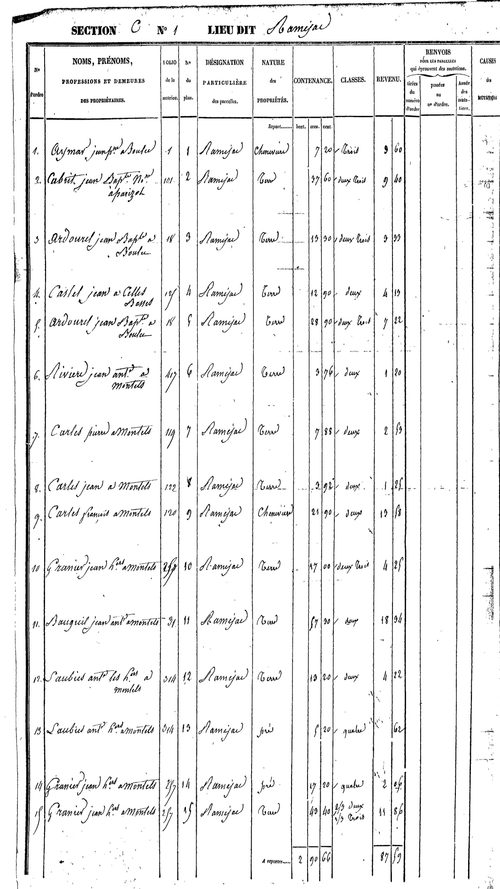 SECTION C N° 1 LIEU DIT Ramejac
N° d'ordre
NOMS, PRÉNOMS, PROFESSIONS ET DEMEURES DES PROPRIÉTAIRES.
FOLIO de la matrice.
N° du plan.
DÉSIGNATION PARTICULIÈRE des parcelles.
NATURE des PROPRIÉTÉS.
CONTENANCE.
CLASSES.
REVENU.
RENVOIS
POUR LES PARCELLES qui éprouvent des mutations.
tirées du numéro d'ordre
portées au n° d'ordre.
Année des mutations.
CAUSES des MUTATIONS
Report..... hect. are. cen.
1. 1 1 Ramejac 7 20 Trois 3 60
2. Cabrit jean Bapt. 101 2 Ramejac Terre 37 60 deux trois 9 40
à parizot
3 Ardourel jean Bapt. a 18 3 Ramejac Terre 13 30 deux trois 3 33
Boulu
4. Castel jean a 4 Ramejac Terre 12 90 deux 4 13
5. Ardourel jean Bapt. a 18 5 Ramejac Terre 28 90 deux trois 7 22
Boulu
6. Riviere jean ant. a 417 6 Ramejac Terre 3 76 deux 1 20
montels
7. Carles pierre a montels 119 7 Ramejac Terre 7 88 deux 2 53
8. Carles jean a montels 122 8 Ramejac Terre 3 92 deux 1 25
9. Carles francois a montels 120 9 Ramejac 21 90 deux 13 58
10 Granier jean h.rs a montels 257 10 Ramejac Terre 17 00 deux trois 4 25
11. jean ant. a montels 31 11 Ramejac Terre 57 30 deux 18 34
12. Laubies ant. les h.rs a 314 12 Ramejac Terre 13 20 deux 4 22
montels
13 Laubies ant. h.rs a montels 314 13 Ramejac pré 5 20 quatre 62
14 Granier jean h.rs a montels 257 14 Ramejac pré 17 20 quatre 2 06
15 Granier jean h.rs a montels 257 15 Ramejac Terre 43 40 2/3 deux 1/3 trois 11 86
A reporter..... 2 90 66 87 59